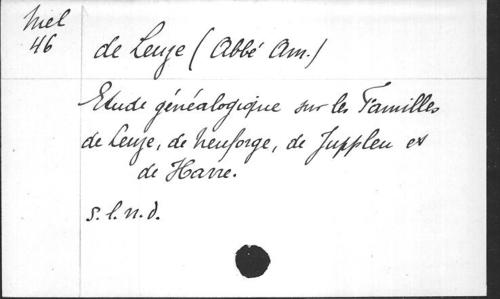 Mel
46
de Leuze (Abbé Am.)
Etude généalogique sur les Familles
de Leuze, de Neuforge, de Juppleu et
de Harre.
s.l.n.d.